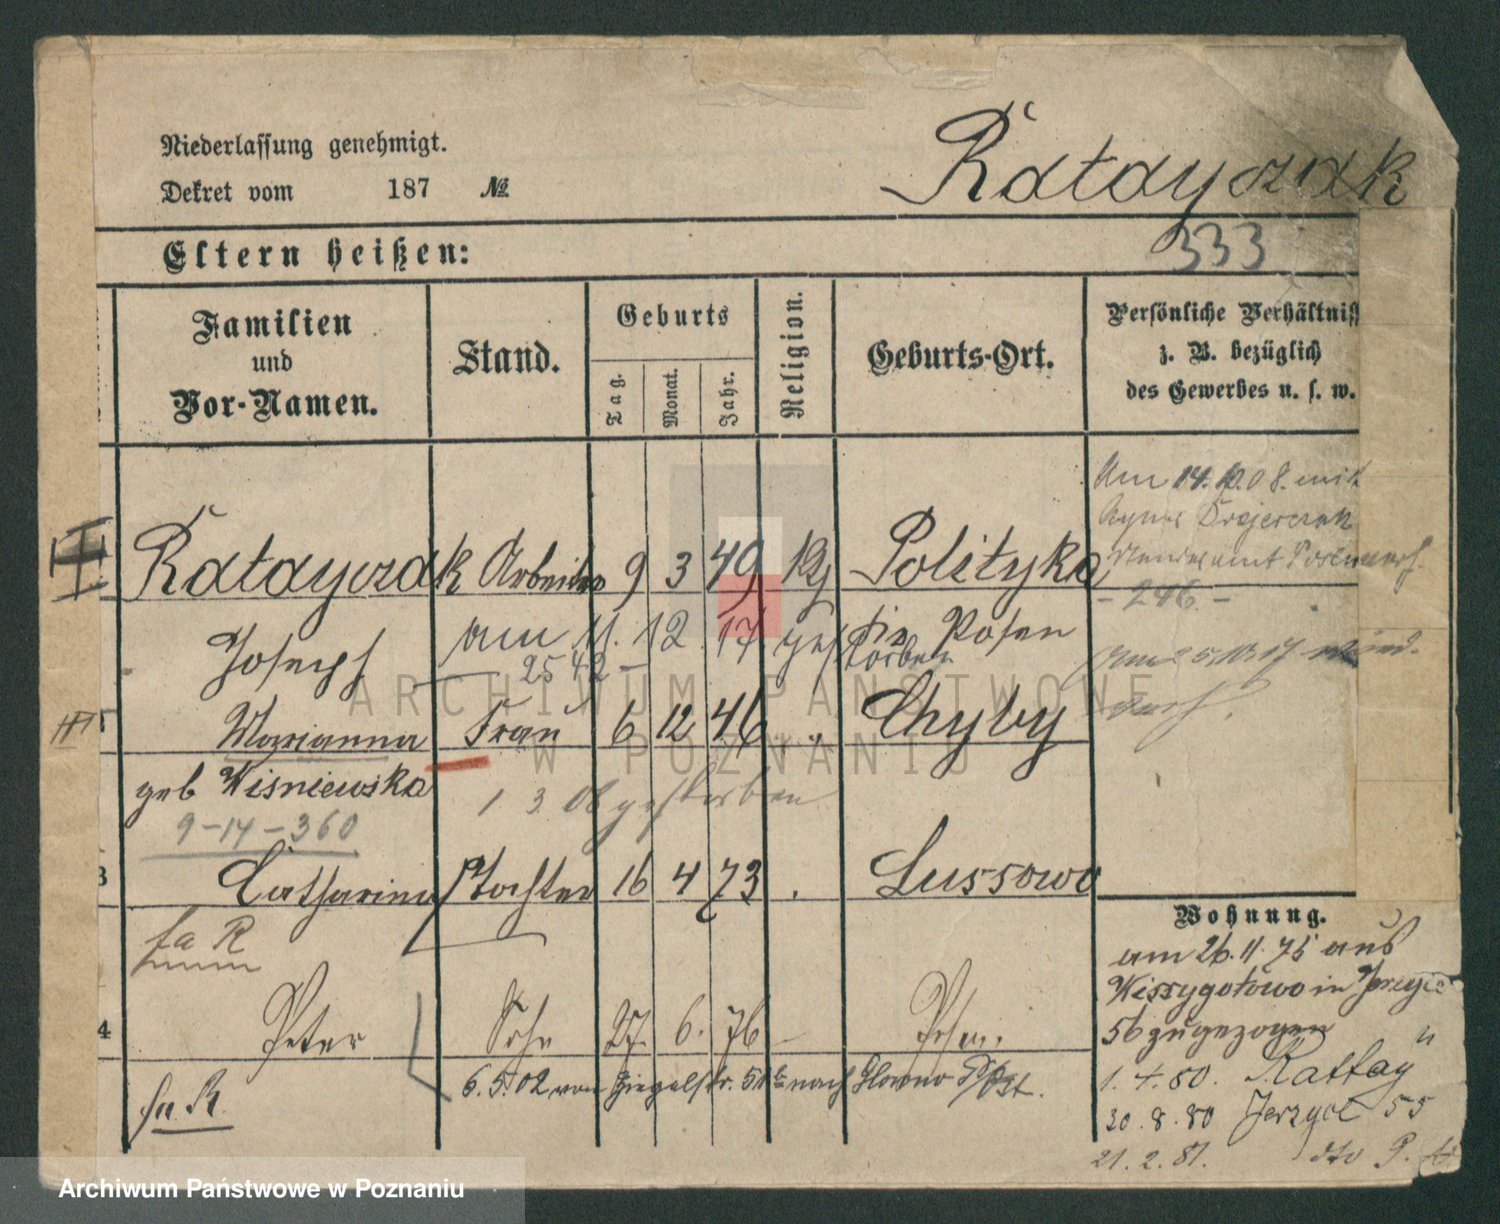 Niederlassung genehmigt.
Dekret vom 187 №
Ratayczak
333
Eltern heißen:
Familien und Vor-Namen.
Stand.
Geburts
Tag. Monat. Jahr.
Religion.
Geburts-Ort.
Persönliche Verhältniss
z. B. bezüglich
des Gewerbes u. s. w.
Am 14.10.08. mit
Agnes
Standesamt
- 246. -
Ratayczak Arbeiter 9 3 49 Polityka
Joseph am 11. 12. 17 gestorben in Posen
2542 -
Marianna Frau 6 12 46 " Chyby
geb Wisniewska
1 3 gestorben
9-14-360
3 Catharina Tochter 16 4 73 . Lussowo
fa R
4 Peter Sohn 27. 6. 76 - Posen.
6.5.02 von Ziegelstr. nach Glowno P/Ost.
fa R.
Wohnung.
am 26.11.75 aus
Wissygotowo in
56 zugezogen
1.4.80. Rattay "
30.8.80 55
21.2.81. dto P.
ARCHIWUM PAŃSTWOWE
W POZNANIU
Archiwum Państwowe w Poznaniu